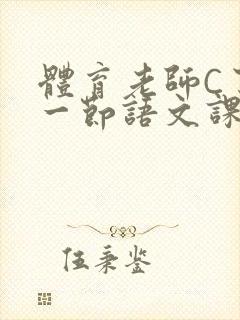 體育老師C
一節語文課
伍秉鉴